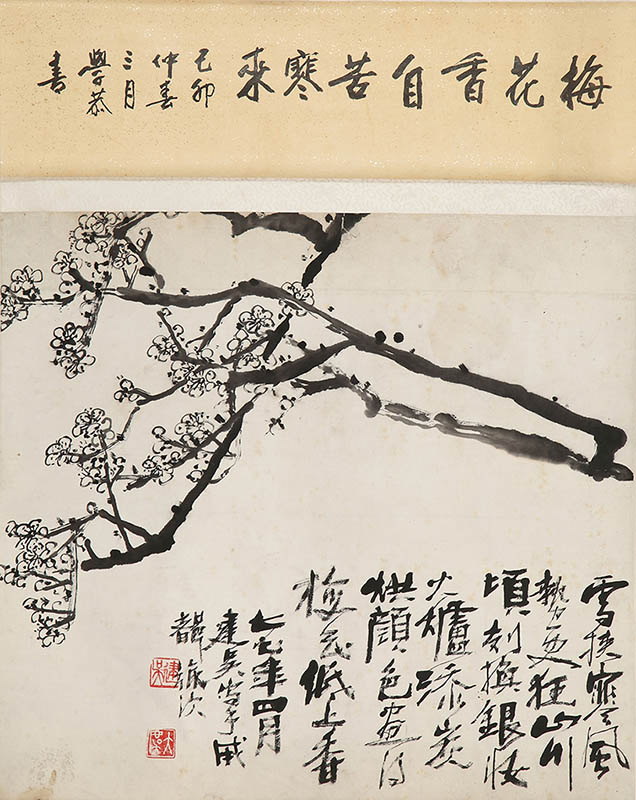 梅花香自苦寒來
己卯
仲春
三月
學恭
書
雪挾寒風
勢更狂山川
頃刻換銀妝
火爐添炭
烘顏色畫得
梅花紙上香
年四月
建吳寫于